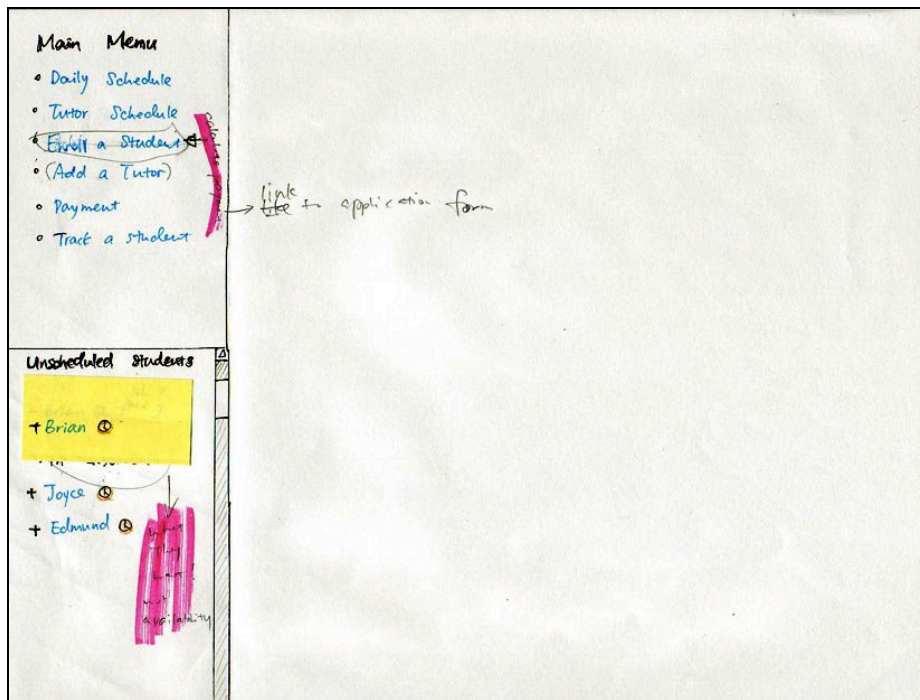 Main Menu
Daily Schedule
Tutor Schedule
Enroll a Student
(Add a Tutor)
Payment
Track a student
calculate payment
link
to application form
Unscheduled Students
+ Brian
+ Joyce
+ Edmund
what
they
want
not
availability